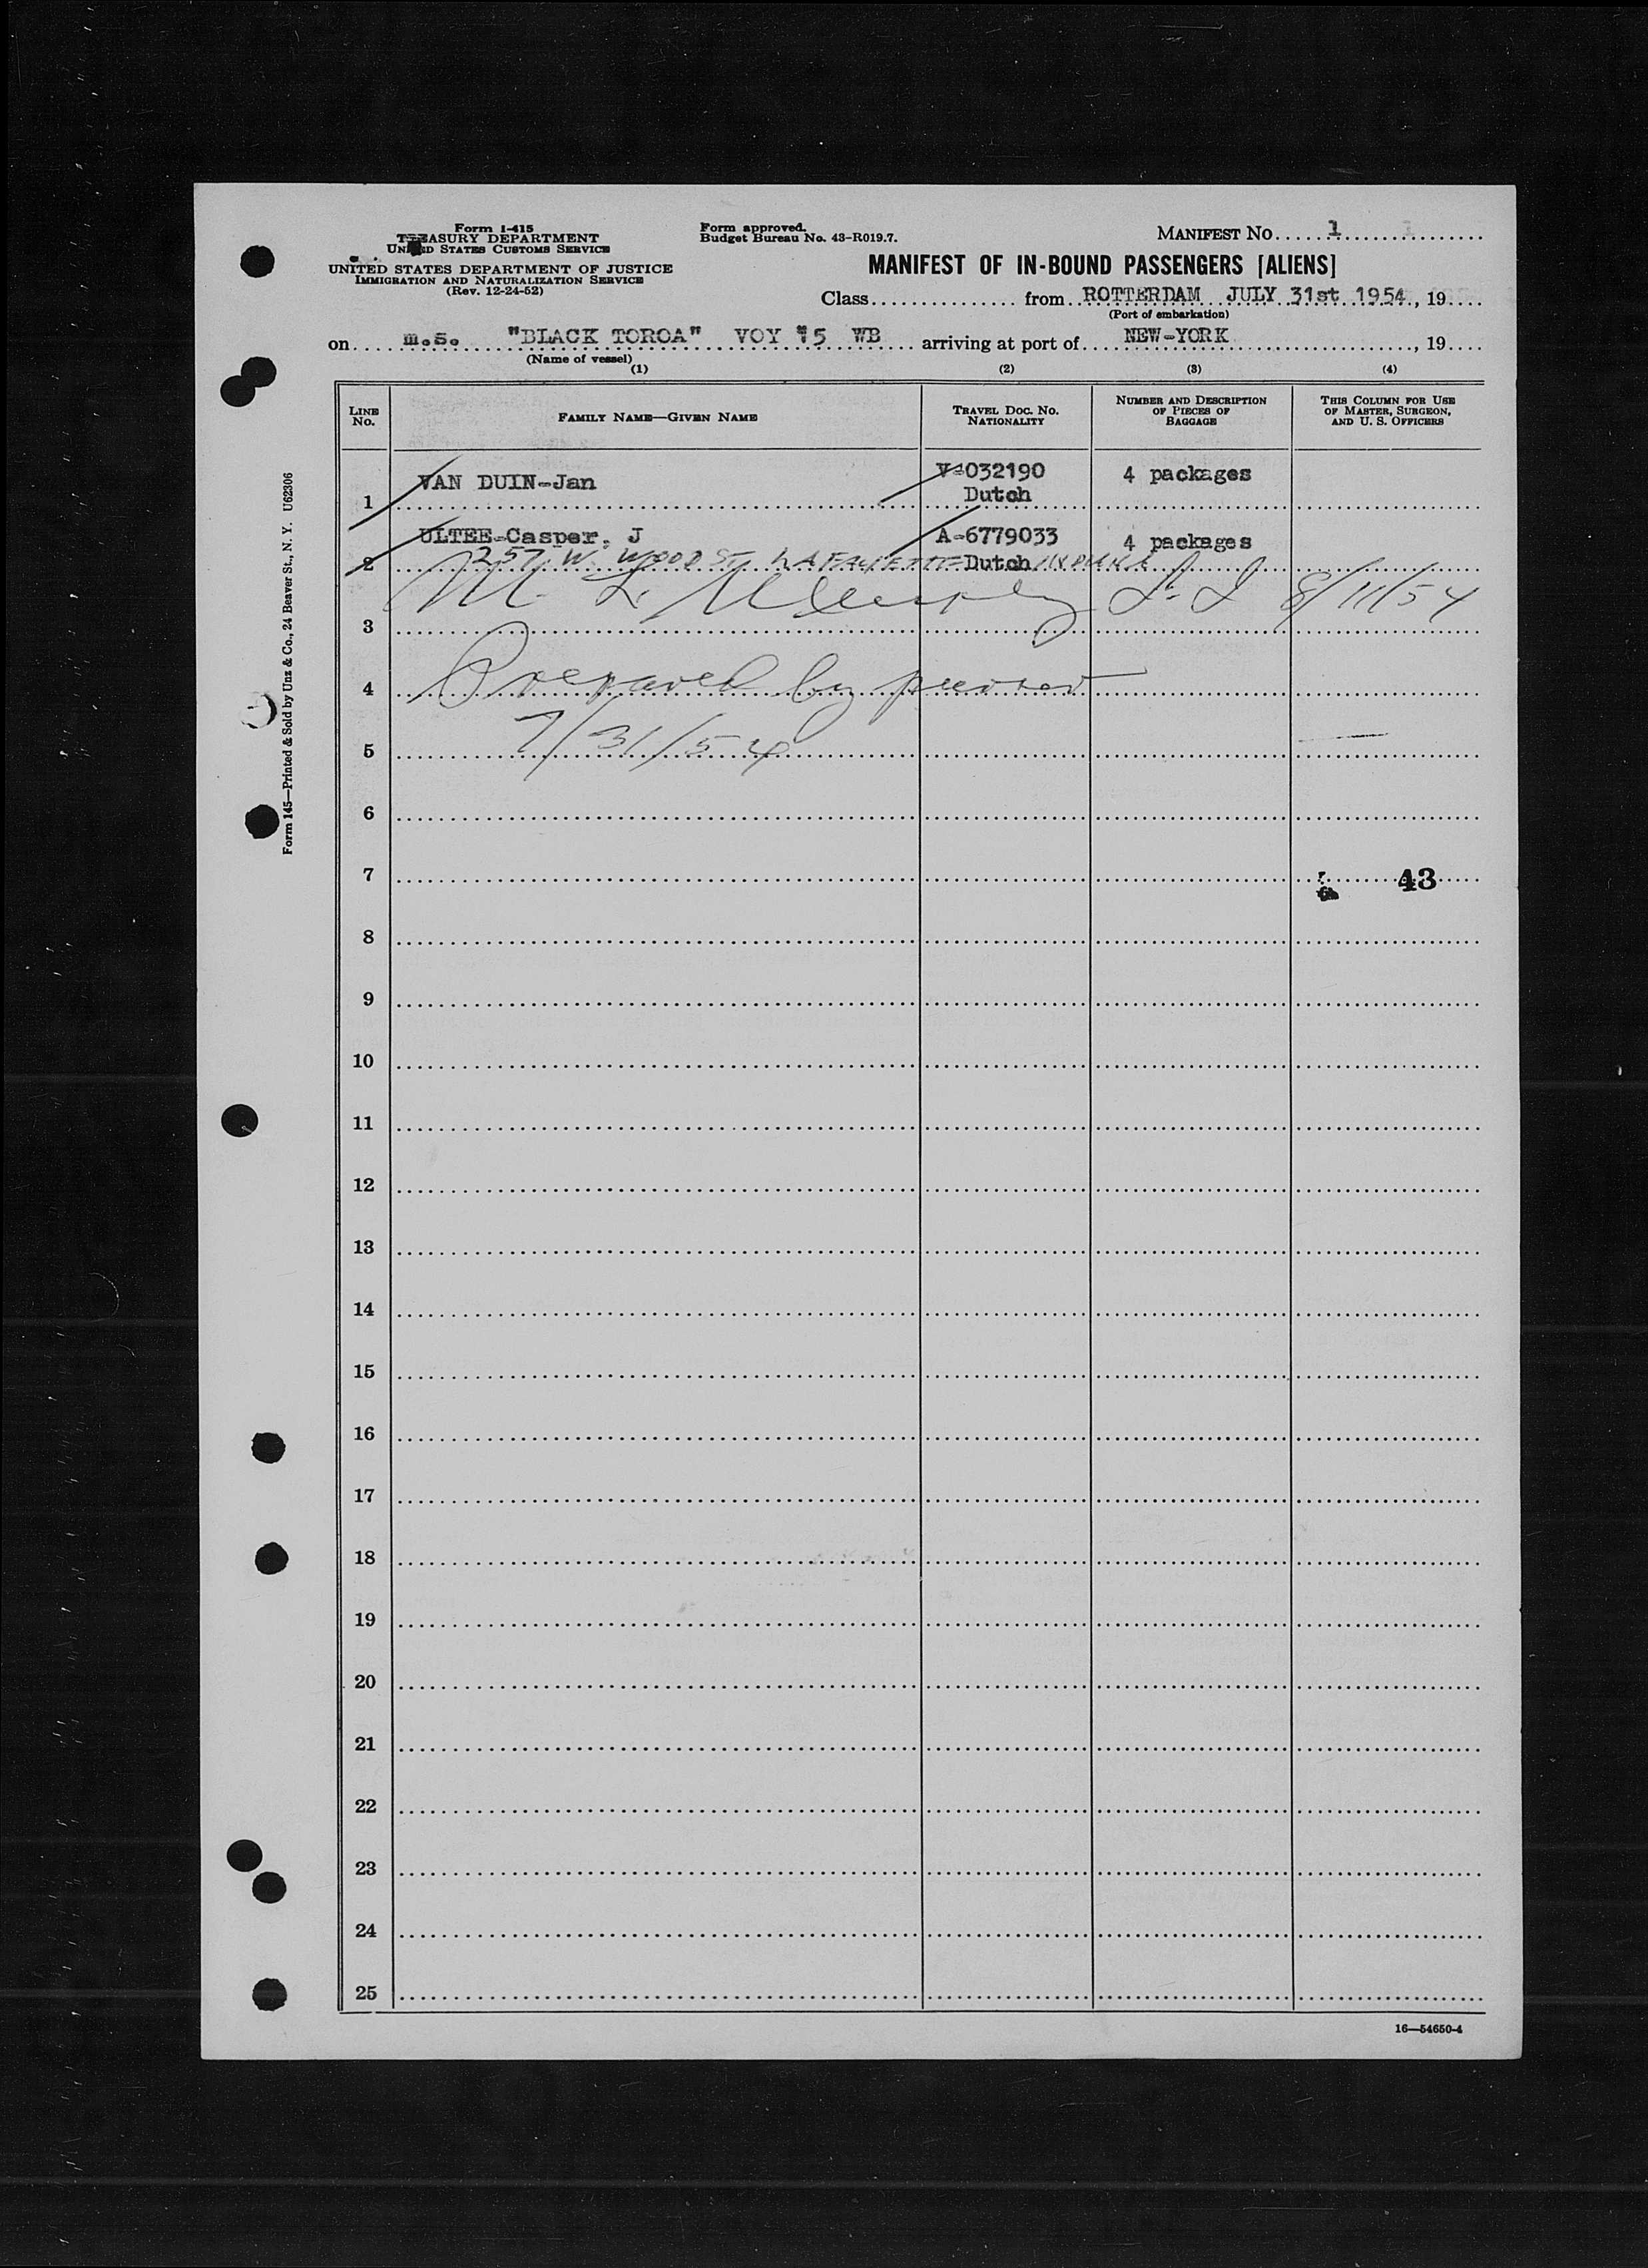 Form I-415
TREASURY DEPARTMENT
UNITED STATES CUSTOMS SERVICE
UNITED STATES DEPARTMENT OF JUSTICE
IMMIGRATION AND NATURALIZATION SERVICE
(Rev. 12-24-52)
Form approved.
Budget Bureau No. 43-R019.7.
MANIFEST No. 1
MANIFEST OF IN-BOUND PASSENGERS [ALIENS]
Class from ROTTERDAM JULY 31st 1954, 19
(Port of embarkation)
on m.s. "BLACK TOROA" VOY #5 WB arriving at port of NEW-YORK, 19
(Name of vessel)
(1) (2) (3) (4)
LINE No. FAMILY NAME—GIVEN NAME TRAVEL DOC. NO. NATIONALITY NUMBER AND DESCRIPTION OF PIECES OF BAGGAGE THIS COLUMN FOR USE OF MASTER, SURGEON, AND U. S. OFFICERS
1 VAN DUIN-Jan V-032190 Dutch 4 packages
2 ULTEE-Casper. J A-6779033 Dutch 4 packages
257 W. WOOD ST. LAFAYETTE INDIANA
M. L. 8/11/54
3
4 Prepared by purser
5 7/31/54
6
7 43
8
9
10
11
12
13
14
15
16
17
18
19
20
21
22
23
24
25
16—54650-4
Form 145—Printed & Sold by Unz & Co., 24 Beaver St., N. Y. U62306